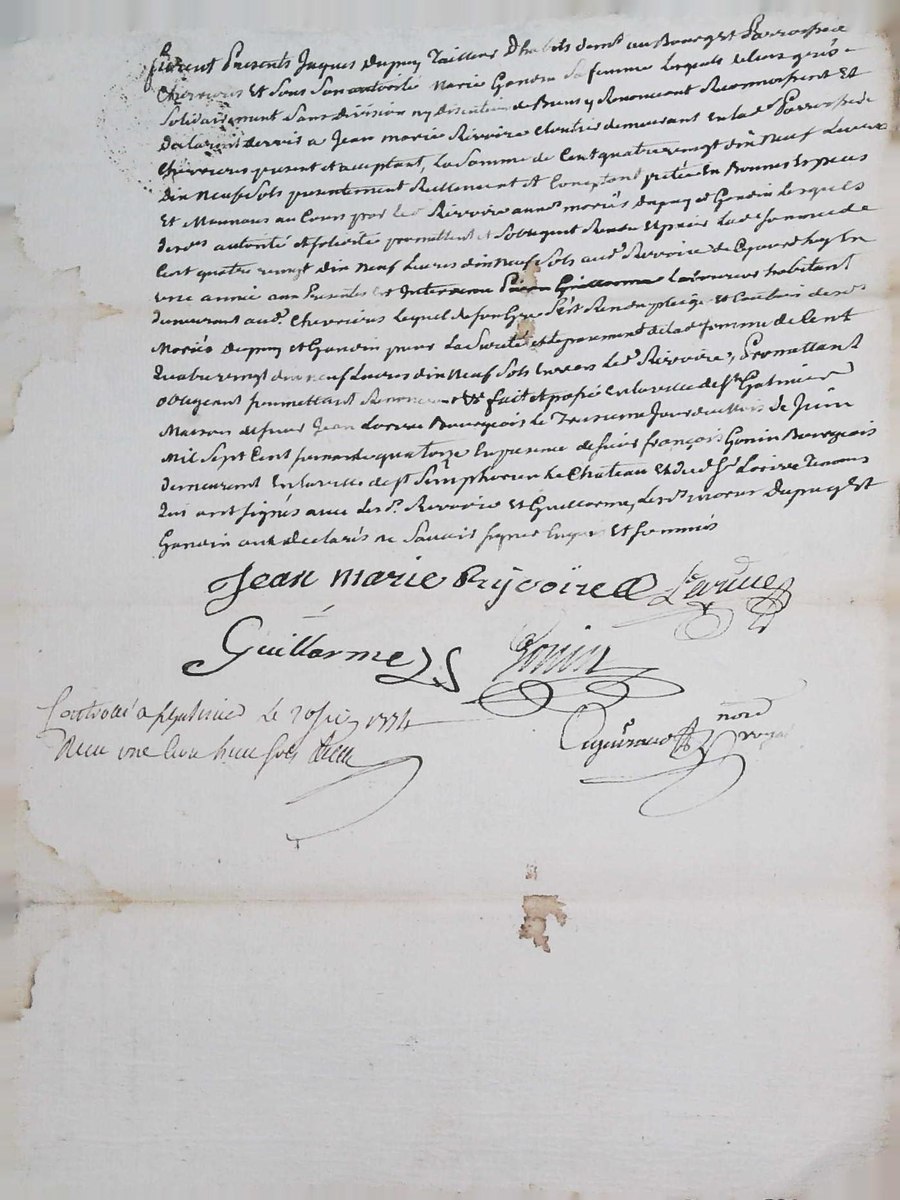 furent Presents Jaques Dupuy Tailleur Dhabits dem.t au Bourg et Parroisse
Chevrieres Et Sous Son autorité Marie Gondin Sa femme Lesquels de leur gré
Solidairement Sans division ny discution de Biens y Renonceant Reconnoissent Et
Declarent devoir a Jean marie Rivoire Cloutier demeurant En lad.e Parroisse de
Chevrieres present et acceptant, La Somme de Cent quatre vingt dix Neuf Livres
dix Neuf Sols presentement Reellement Et Comptant prété En Bonnes Especes
Et Monnoies au Cours par led. Rivoire auxd. mariés Dupuy et Gondin Lesquels
desd. autorité et solidité promettent et sobligent Rendre et payer Lad.e Somme de
Cent quatre vingt dix Neuf Livres dix Neuf Sols aud. Rivoire de Cejourdhuy En
une année aux Presentes Est Intervenu Guillarme Laboureur habitant
demeurant aud. Chevrieres Lequel de son Gré s'est Rendu pleige et Caution desd.
Mariés Dupuy et Gondin pour La Sureté et le payement de lad.e Somme de Cent
Quatre vingt dix neuf Livres dix Neuf Sols Envers Led. Rivoire, Promettant
obligeant soumettant Renonceant fait et passé En la ville de S.t Galmier
Maison de sieur Jean Bourgeois Le Treizieme Jour du Mois de Juin
Mil Sept Cent soixante quatorze En presence de sieur françois Gonin Bourgeois
demeurant En la ville de S.t Simphorien Le Château Et dud. S.r Temoins
Qui ont signés avec Les d. Rivoire Et Guillarme, Les d. mariés Dupuy Et
Gondin ont déclarés ne Savoir signer Enquis Et sommés
Jean marie Rijvoire
Guillarme Gonin
Controllé a s.t Galmier Le juin 1774
Recu une livre huit sols
not.e royal